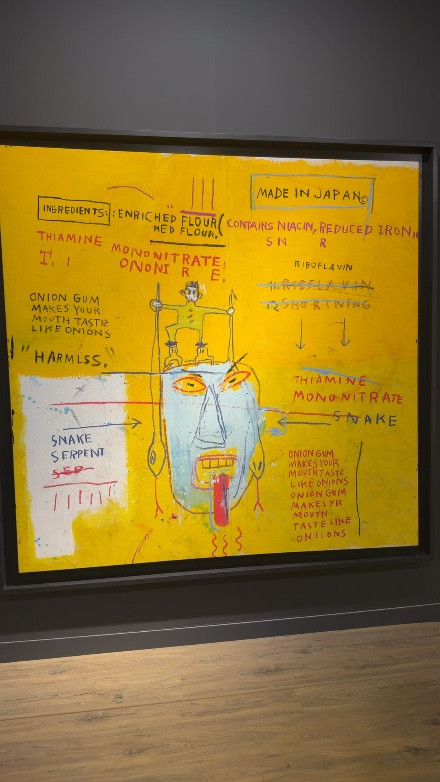 MADE IN JAPAN©
INGREDIENTS: : ENRICHED FLOUR (CONTAINS NIACIN, REDUCED IRON,
HED FLOUR.
THIAMINE MONONITRATE;
SN R
T. I ONONI R E,
RIBOFLAVIN
11. RIBFLAVIN
12 SHORTNING
ONION GUM
MAKES YOUR
MOUTH TASTE
LIKE ONIONS
"HARMLSS."
THIAMINE
MONONITRATE
SNAKE
SNAKE
SERPENT
SEP
ONION GUM
MAKES YOUR
MOUTH TASTE
LIKE ONIONS
ONION GUM
MAKES YR
MOUTH
TASTE LIKE
ONIIONS